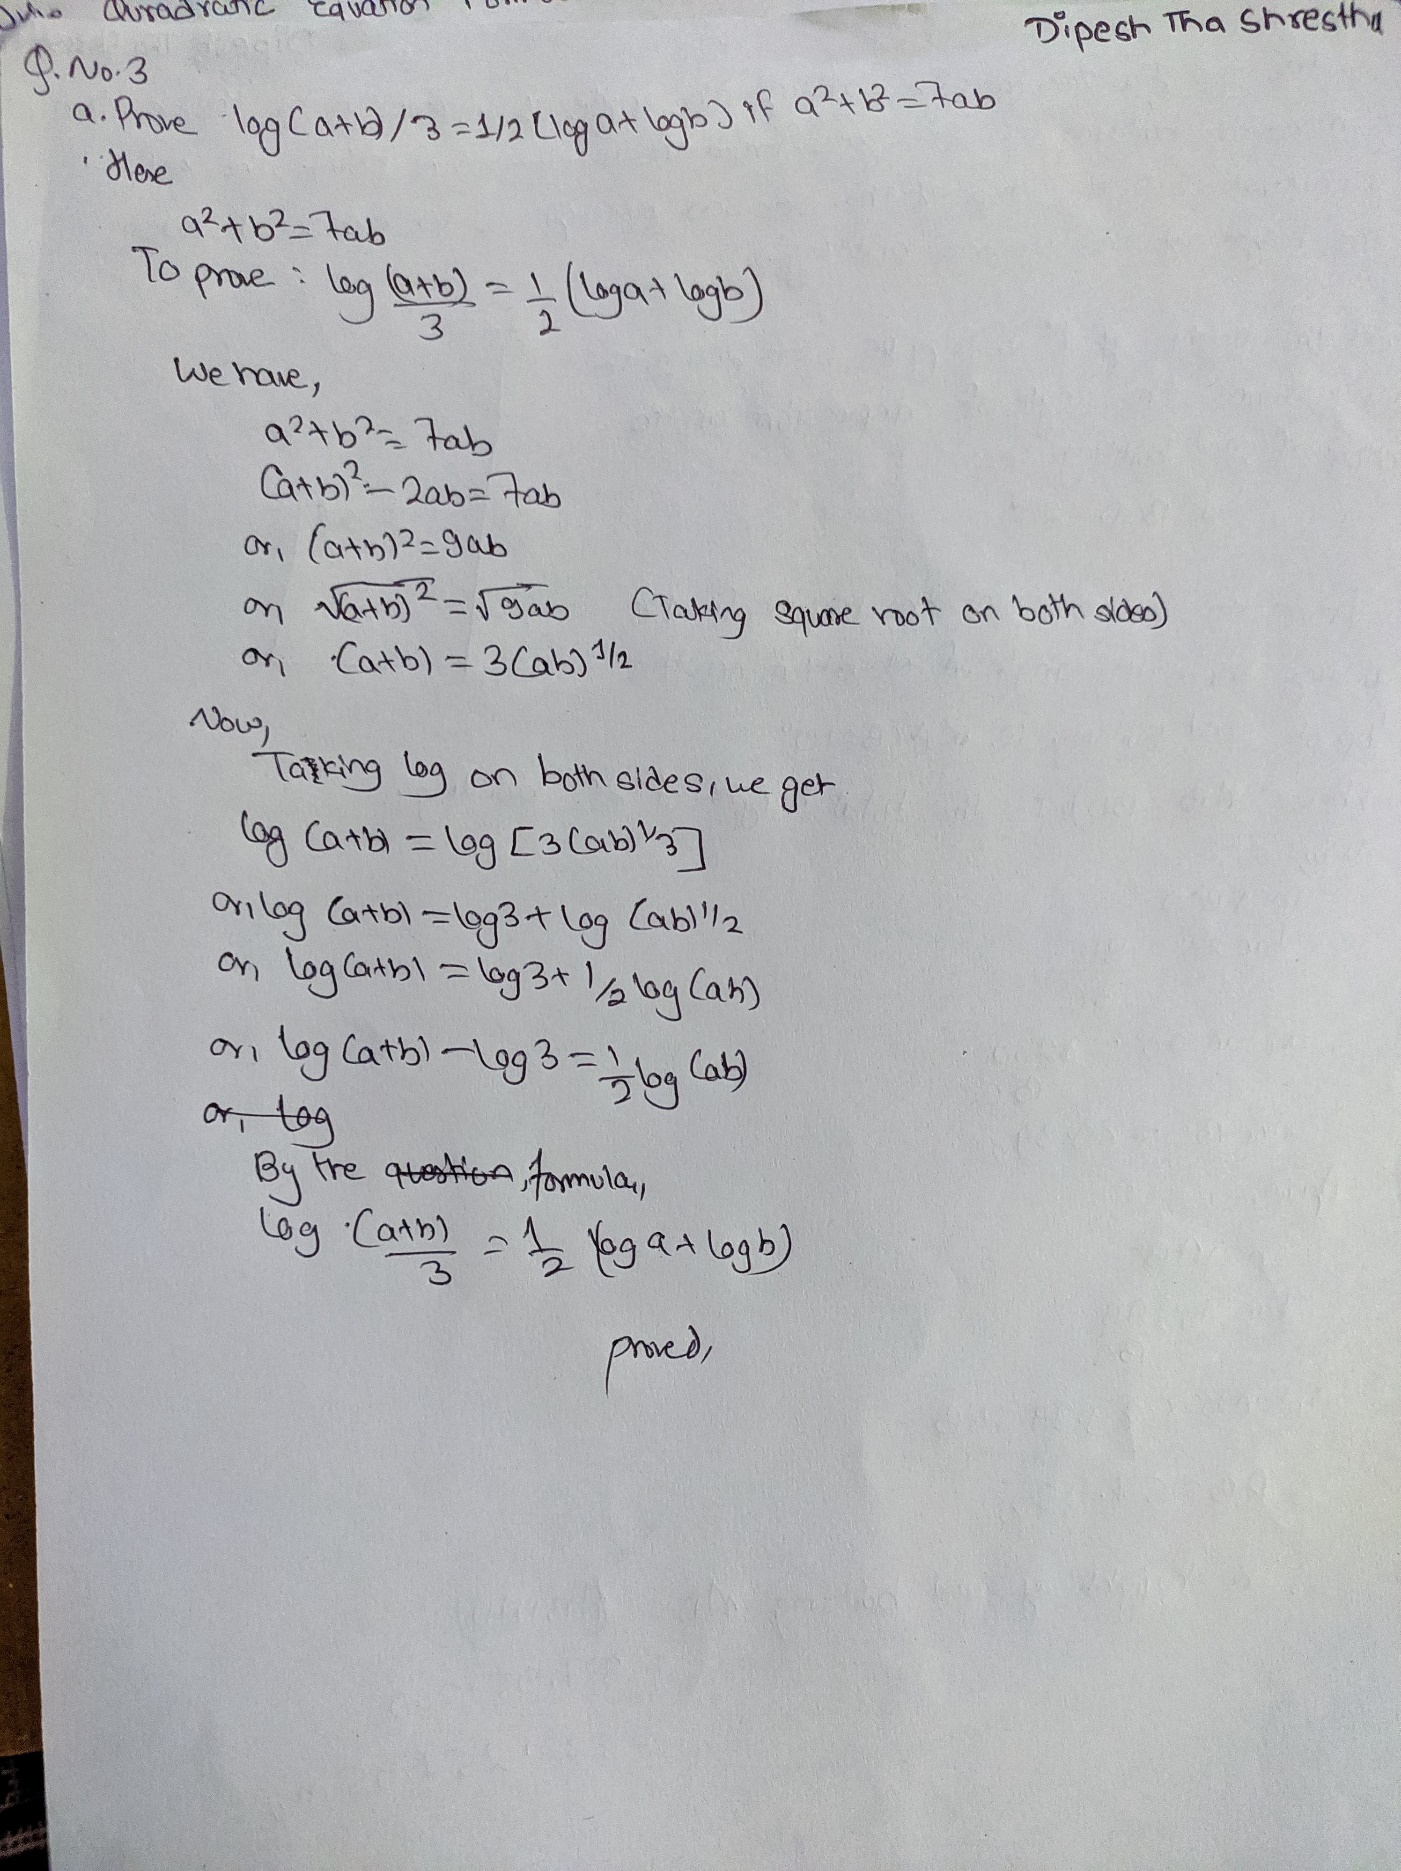 Quradratic Equation
Dipesh Tha Shrestha
Q. No. 3
a. Prove log (a+b)/3 = 1/2 (log a + log b) if a²+b² = 7ab
Here
a²+b² = 7ab
To prove : log (a+b)/3 = 1/2 (log a + log b)
We have,
a²+b² = 7ab
(a+b)² - 2ab = 7ab
or, (a+b)² = 9ab
or √(a+b)² = √9ab (Taking square root on both sides)
or, (a+b) = 3(ab)^1/2
Now,
Taking log on both sides, we get
log (a+b) = log [3(ab)^1/3]
or, log (a+b) = log3 + log (ab)^1/2
or, log (a+b) = log 3 + 1/2 log (ab)
or, log (a+b) - log 3 = 1/2 log (ab)
or, log
By the question, formula,
log (a+b)/3 = 1/2 (log a + log b)
proved,